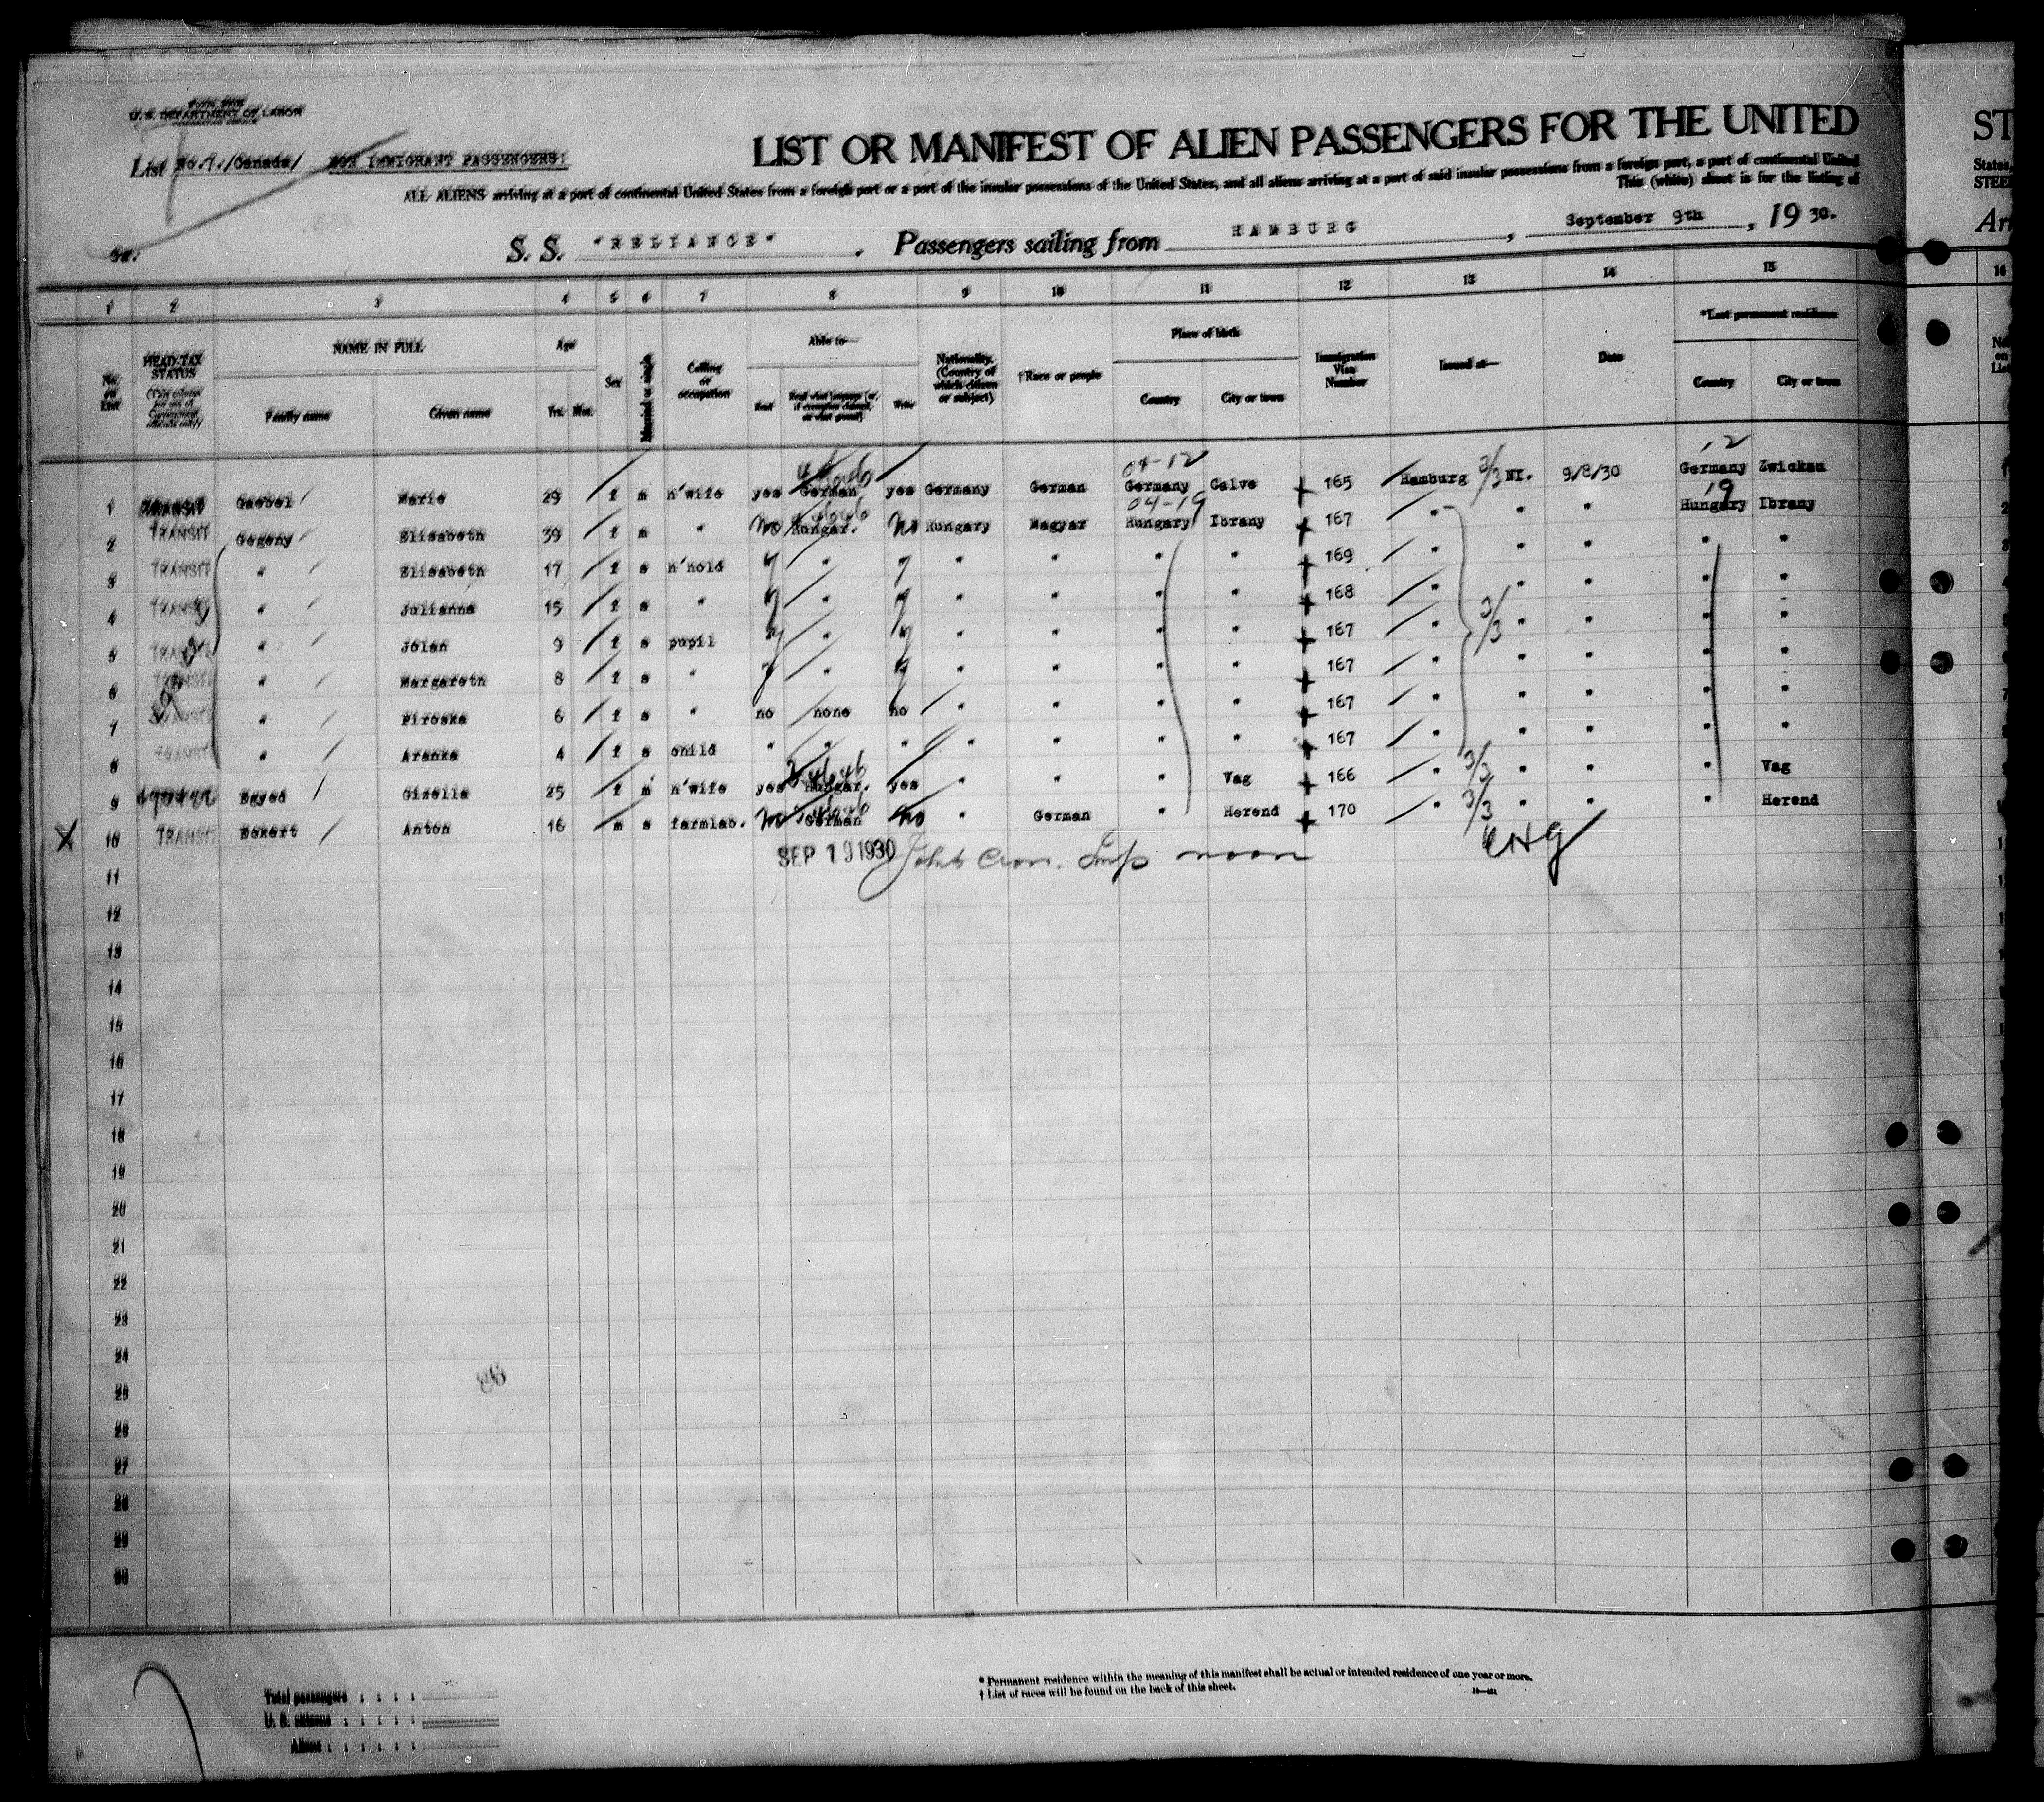 U. S. DEPARTMENT OF LABOR
List No.7./Canada/ NON IMMIGRANT PASSENGERS!
LIST OR MANIFEST OF ALIEN PASSENGERS FOR THE UNITED
ALL ALIENS arriving at a port of continental United States from a foreign port or a port of the insular possessions of the United States, and all aliens arriving at a port of said insular possessions from a foreign port, a port of continental United
This (white) sheet is for the listing of
S. S. "RELIANCE" . Passengers sailing from HAMBURG , September 9th , 19 30.
1 2 3 4 5 6 7 8 9 10 11 12 13 14 15
No. on List
HEAD-TAX STATUS
NAME IN FULL
Family name Given name
Age
Yrs. Mos.
Sex
Married or single
Calling or occupation
Able to—
Read Read what language (or, if exemption claimed, on what ground) Write
Nationality. (Country of which citizen or subject)
†Race or people
Place of birth
Country City or town
Immigration Visa Number
Issued at—
Date
*Last permanent residence
Country City or town
04-12 12
1 TRANSIT Goebel Marie 29 f m h'wife yes German yes Germany German Germany Calve 165 Hamburg 3/3 NI. 9/8/30 Germany Zwickau
04-19 19
2 TRANSIT Gegeny Elisabeth 39 f m " No Hungar. No Hungary Magyar Hungary Ibrany 167 " " " Hungary Ibrany
3 TRANSIT " Elisabeth 17 f s h'hold y " y " " " " 169 " " " " "
4 TRANSIT " Julianna 15 f s " y " y " " " " 168 " " " " "
5 TRANSIT " Jolan 9 f s pupil y " y " " " " 167 " 3/3 " " " "
6 TRANSIT " Margareth 8 f s " y " y " " " " 167 " " " " "
7 TRANSIT " Piroska 6 f s " no none no " " " " 167 " " " " "
8 TRANSIT " Aranka 4 f s child " " " " " " " 167 " " " " "
9 Gizella 25 f m h'wife yes Hungar. yes " " " Vag 166 " 3/3 " " " Vag
X 10 TRANSIT Eckert Anton 16 m s farmlab. No German No " German " Herend 170 " 3/3 " " " Herend
SEP 19 1930 noon
11
12
13
14
15
16
17
18
19
20
21
22
23
24
25
26
27
28
29
30
Total passengers
U. S. citizens
Aliens
* Permanent residence within the meaning of this manifest shall be actual or intended residence of one year or more.
† List of races will be found on the back of this sheet.
ST
States,
STEE
Arr
16
No. on List